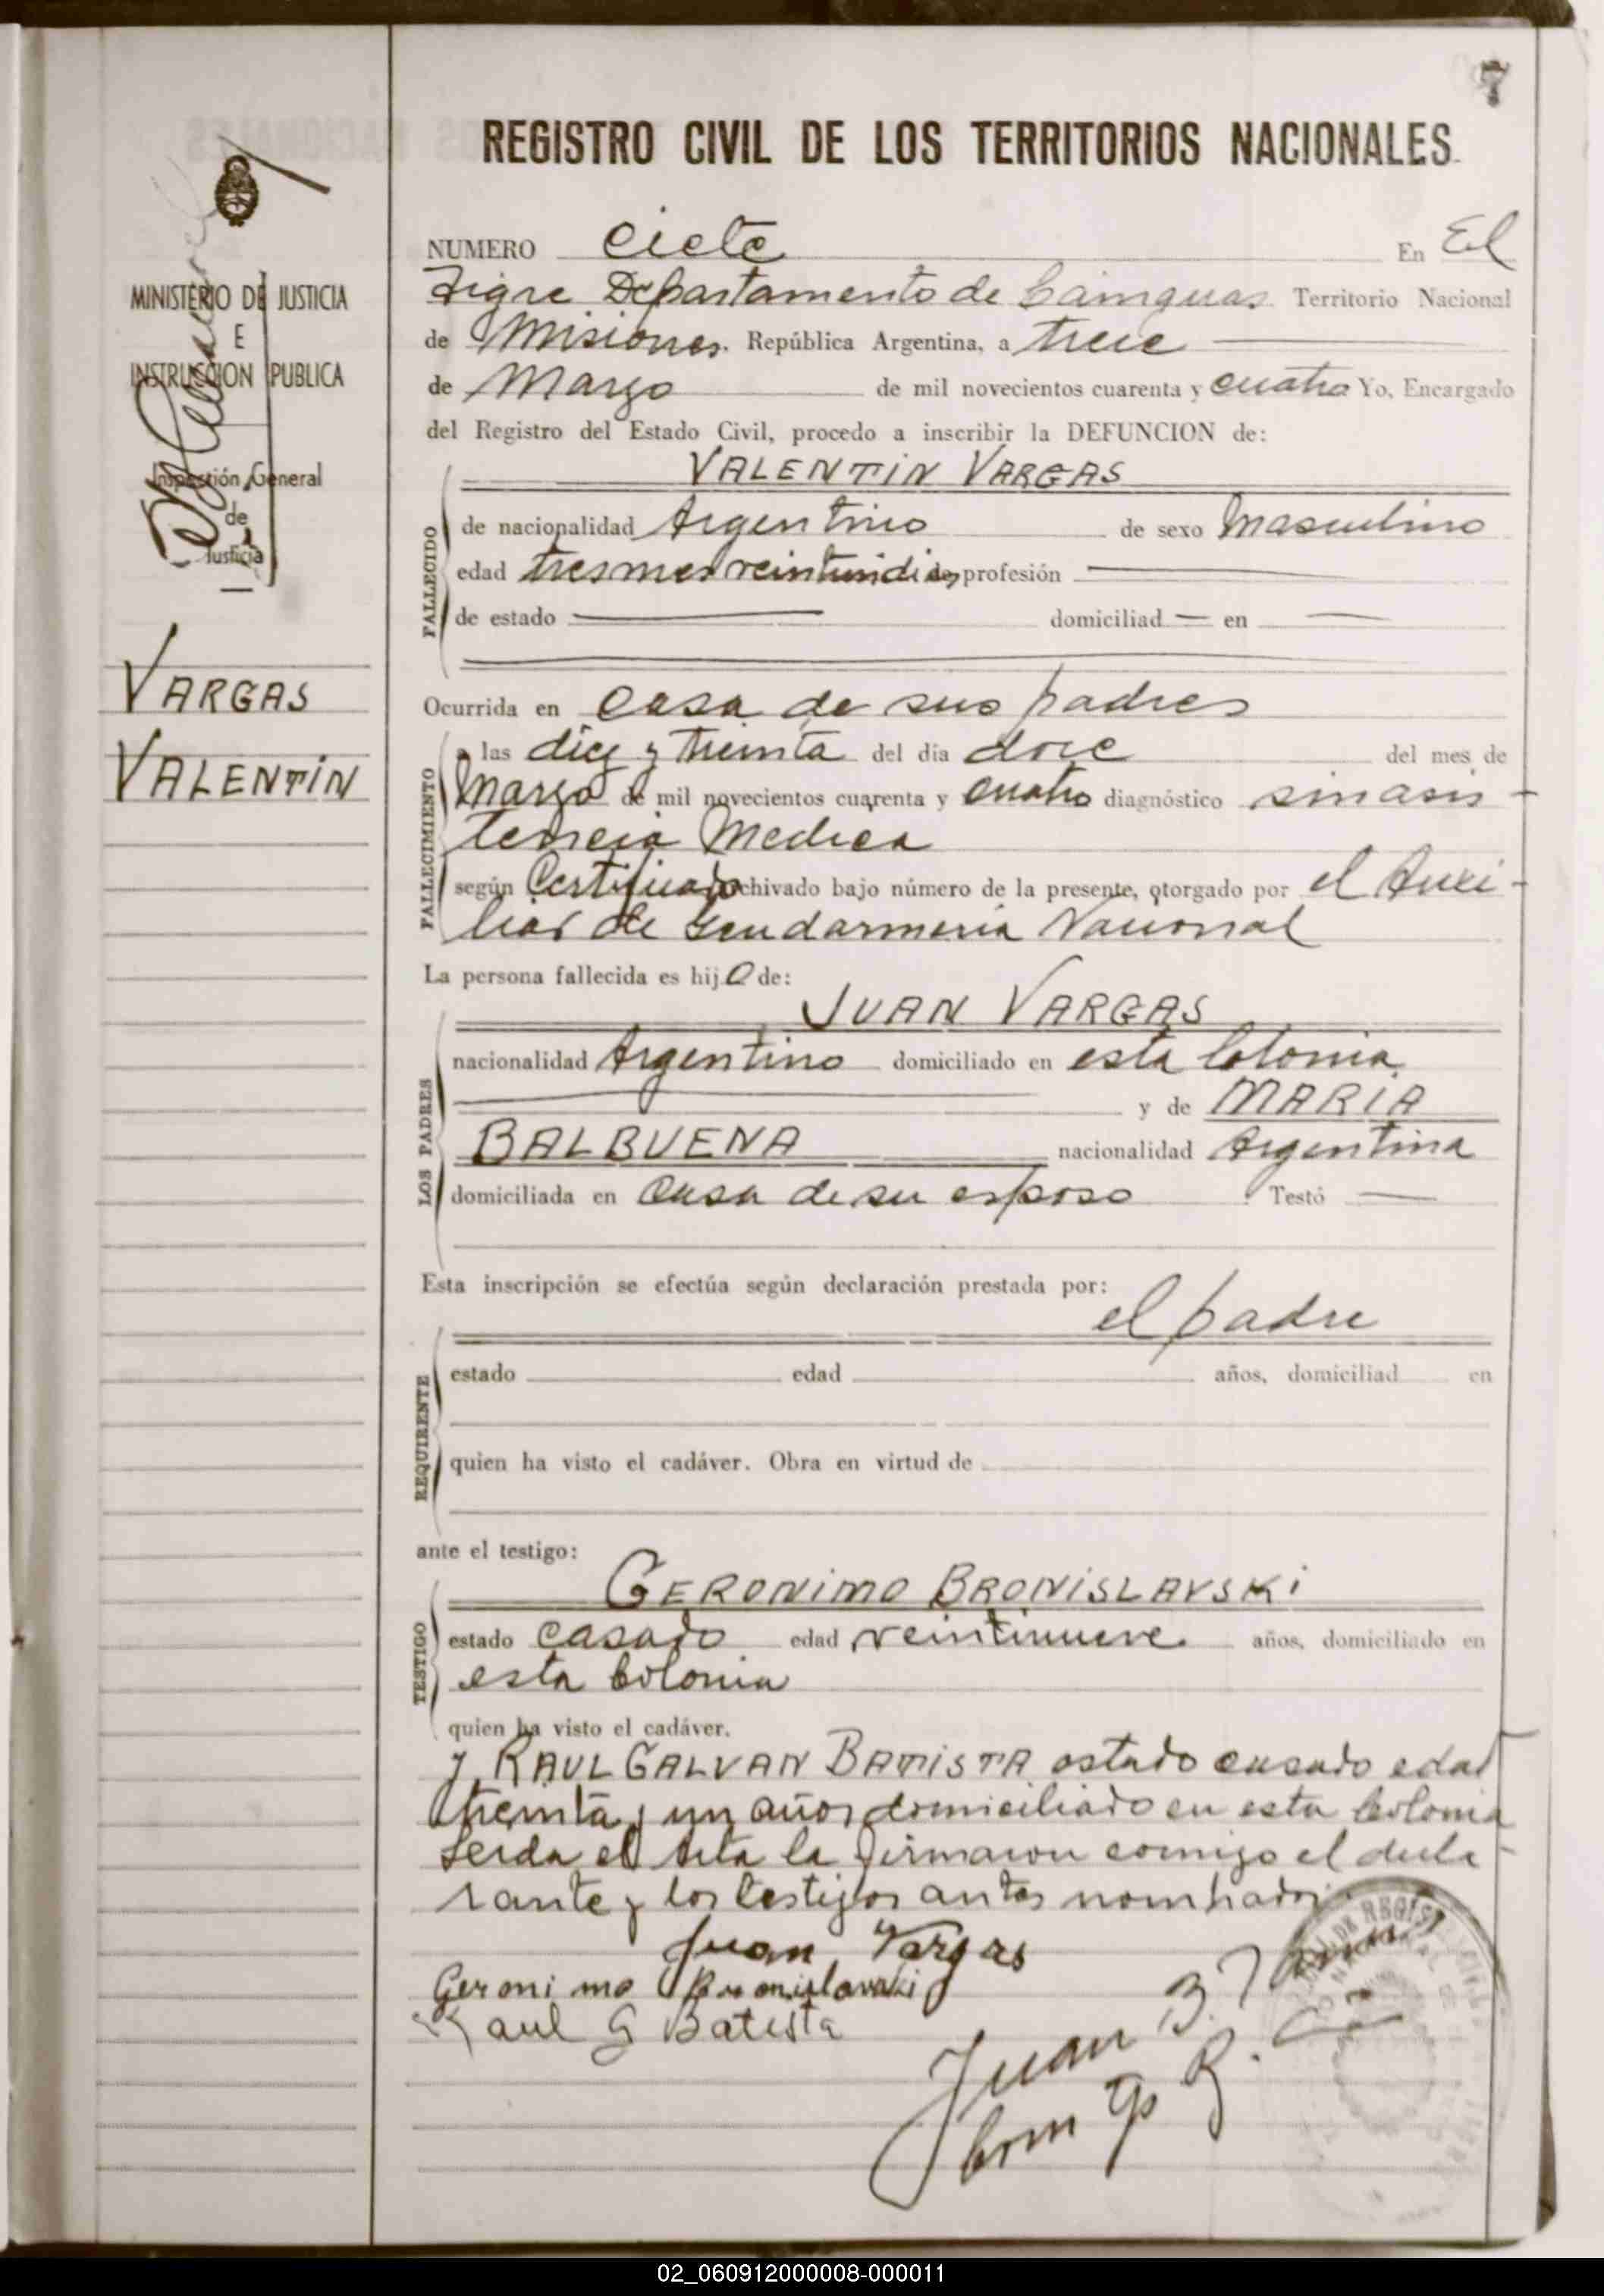 7
REGISTRO CIVIL DE LOS TERRITORIOS NACIONALES
MINISTERIO DE JUSTICIA
E
INSTRUCCION PUBLICA
Inspección General
de
Justicia
VARGAS
VALENTIN
NUMERO ciete En El
Tigre Departamento de Cainguas Territorio Nacional
de Misiones. República Argentina, a trece
de Marzo de mil novecientos cuarenta y cuatro Yo, Encargado
del Registro del Estado Civil, procedo a inscribir la DEFUNCION de:
VALENTIN VARGAS
FALLECIDO
de nacionalidad Argentino de sexo Masculino
edad tres mes veintiundias profesión
de estado domiciliad en
Ocurrida en casa de sus padres
FALLECIMIENTO
a las diez y treinta del día doce del mes de
Marzo de mil novecientos cuarenta y cuatro diagnóstico sin asis-
tencia Medica
según Certificado archivado bajo número de la presente, otorgado por el Auxi-
liar de Gendarmeria Nacional
La persona fallecida es hijo de:
JUAN VARGAS
LOS PADRES
nacionalidad Argentino domiciliado en esta Colonia
y de MARIA
BALBUENA nacionalidad Argentina
domiciliada en casa de su esposo Testó
Esta inscripción se efectúa según declaración prestada por:
el padre
REQUIRENTE
estado edad años, domiciliad en
quien ha visto el cadáver. Obra en virtud de
ante el testigo:
GERONIMO BRONISLAVSKI
TESTIGO
estado casado edad veintinueve años, domiciliado en
esta Colonia
quien ha visto el cadáver.
y RAUL GALVAN BATISTA estado casado edad
treinta y un años domiciliado en esta Colonia
Leida el Acta la firmaron conmigo el decla-
rante y los testigos antes nombrados
Juan Vargas
Geronimo Bronislavski
Raul G Batista
Juan B.
R. C
02_060912000008-000011